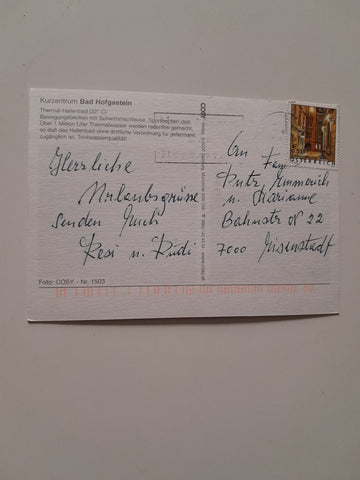 Kurzentrum Bad Hofgastein
Thermal-Hallenbad (32° C)
Bewegungsbecken mit Schwimmschleuse, Sportbecken über
Über 1 Million Liter Thermalwasser werden radonfrei gemacht,
so daß das Hallenbad ohne ärztliche Verordnung für jedermann
zugänglich ist. Trinkwasserqualität.
Herrliche
Urlaubsgrüsse
senden Euch
Resi u. Rudi
Foto: COSY - Nr. 1503
COSY
ÖSTERREICH
An Fam.
Putz, Emmerich
u. Marianne
Bahnstr. 22
7000 Eisenstadt